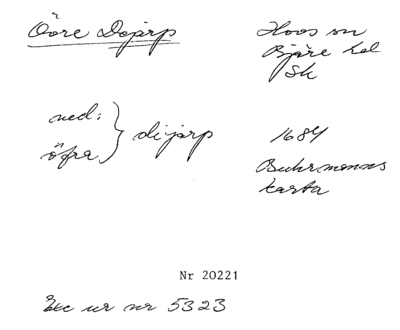 Övre Dejarp
Hovs sn
Bjäre hd
Sk
ned:
öfra } dijarp
1684
Buhrmanns
karta
Nr 20221
Exc ur nr 5323